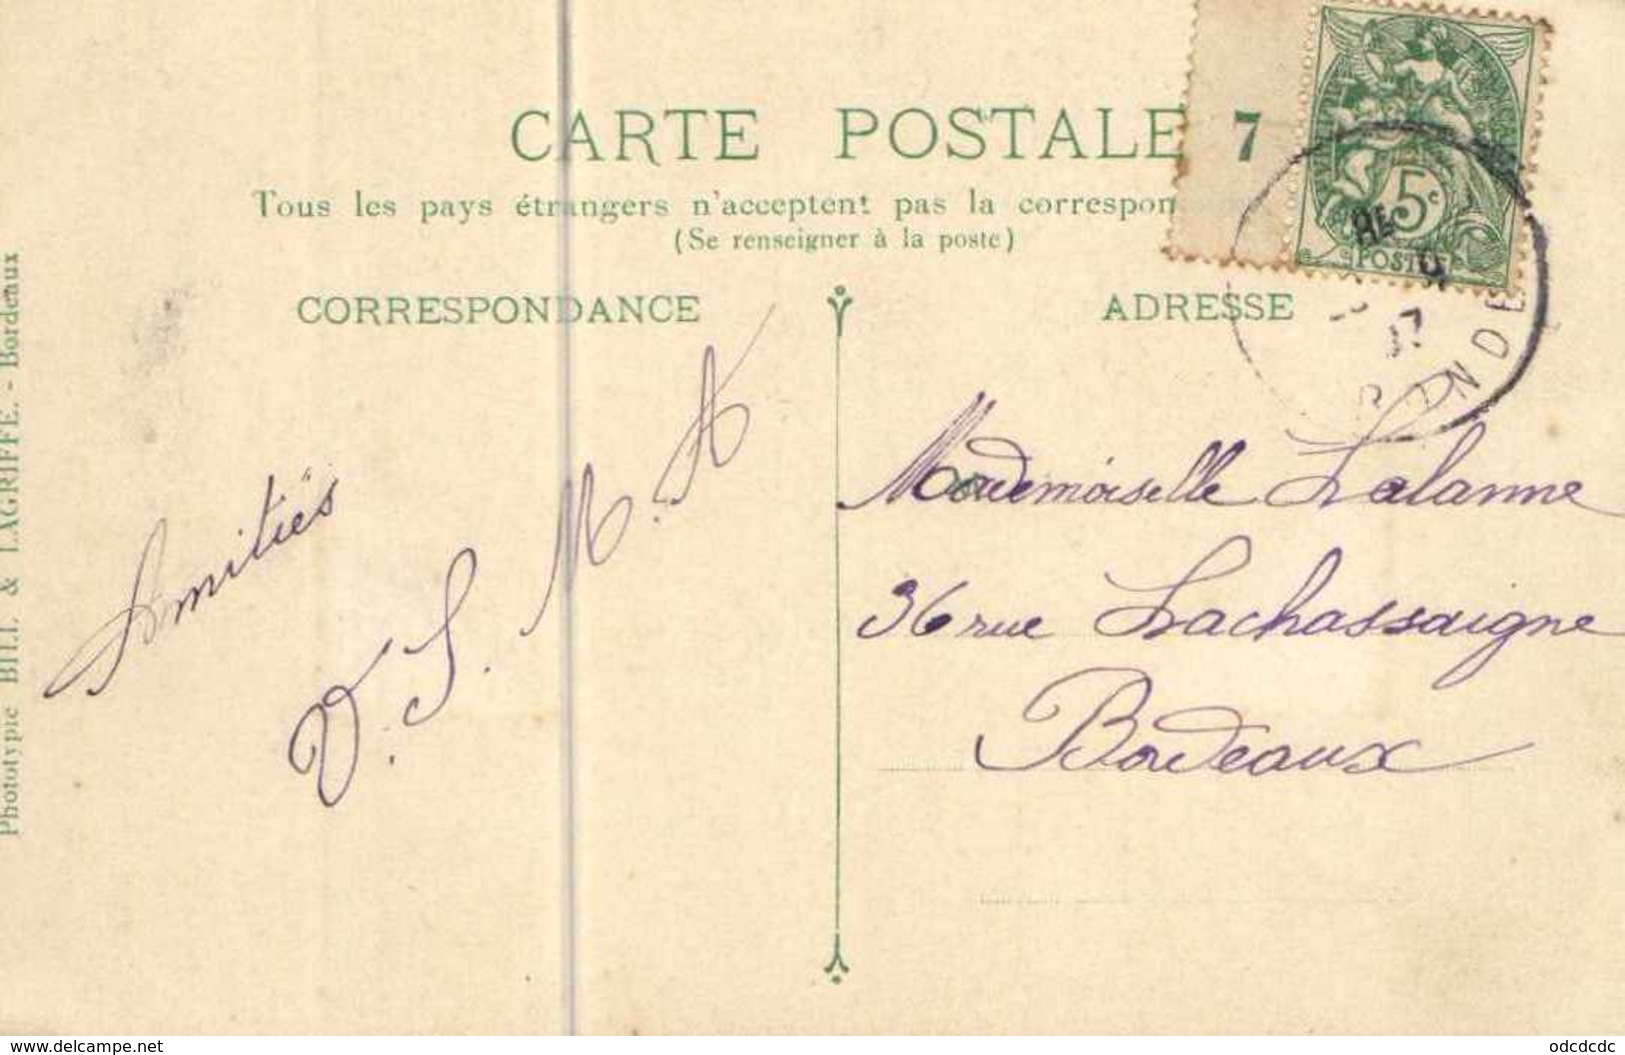 CARTE POSTALE
7
Tous les pays étrangers n'acceptent pas la correspon
(Se renseigner à la poste)
CORRESPONDANCE
ADRESSE
5c
POSTES
Amitiés
V. S. M. A
Mademoiselle Lalanne
36 rue Lachassaigne
Bordeaux
Phototypie BILL. & LAGRIFFE. - Bordeaux
www.delcampe.net
odcdcdc